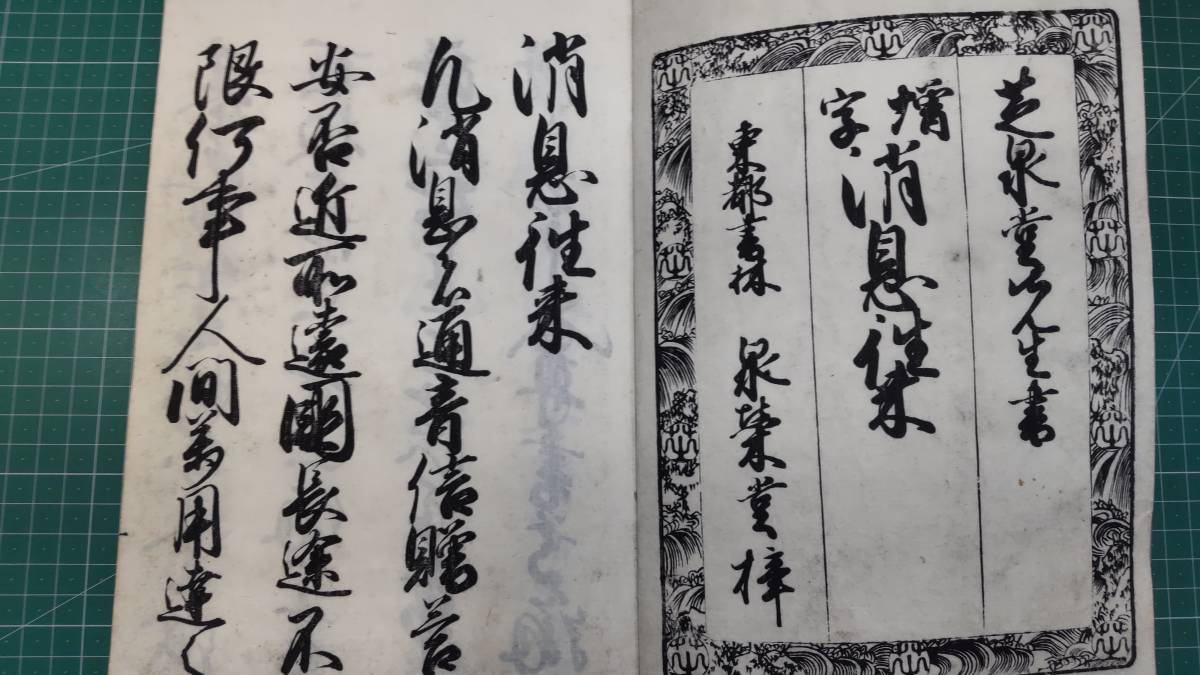 芝泉堂先生書
増字 消息往来
東都書林 泉榮堂梓
消息往来
凡消息者通音信贈答
安否近所遠國長途不
限何事人間萬用達之